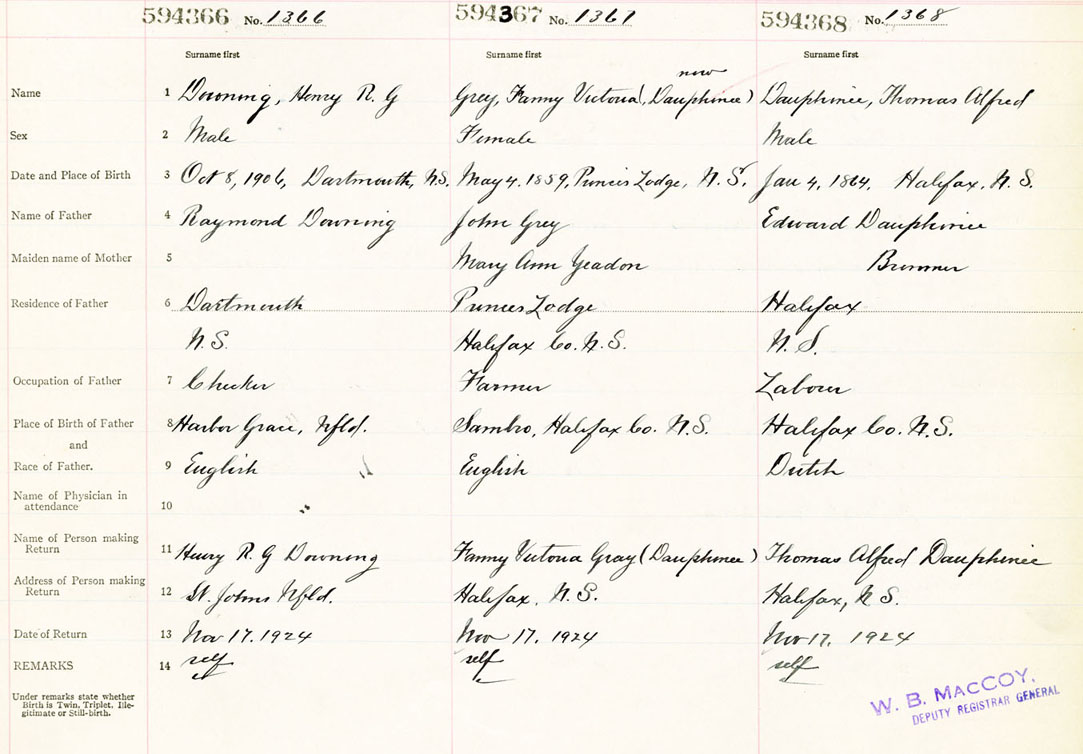 594366 No. 1366 594367 No. 1367 594368 No. 1368
Surname first Surname first Surname first
now
Name 1 Downing, Henry R. G Grey, Fanny Victoria (Dauphinee) Dauphinee, Thomas Alfred
Sex 2 Male Female Male
Date and Place of Birth 3 Oct 8, 1906, Dartmouth, N.S. May 4. 1859, Princes Lodge, N.S. Jan 4, 1864, Halifax, N.S.
Name of Father 4 Raymond Downing John Grey Edward Dauphinee
Maiden name of Mother 5 Mary Ann Yeadon Brunner
Residence of Father 6 Dartmouth Princes Lodge Halifax
N.S. Halifax Co. N.S. N.S.
Occupation of Father 7 Checker Farmer Labour
Place of Birth of Father 8 Harbor Grace, Nfld. Sambro, Halifax Co. N.S. Halifax Co. N.S.
and
Race of Father. 9 English English Dutch
Name of Physician in
attendance 10
Name of Person making
Return 11 Henry R. G Downing Fanny Victoria Gray (Dauphinee) Thomas Alfred Dauphinee
Address of Person making
Return 12 St. Johns Nfld. Halifax, N.S. Halifax, N.S.
Date of Return 13 Nov 17. 1924 Nov 17. 1924 Nov 17, 1924
REMARKS 14 self self self
Under remarks state whether
Birth is Twin, Triplet, Ille-
gitimate or Still-birth.
W. B. MACCOY,
DEPUTY REGISTRAR GENERAL